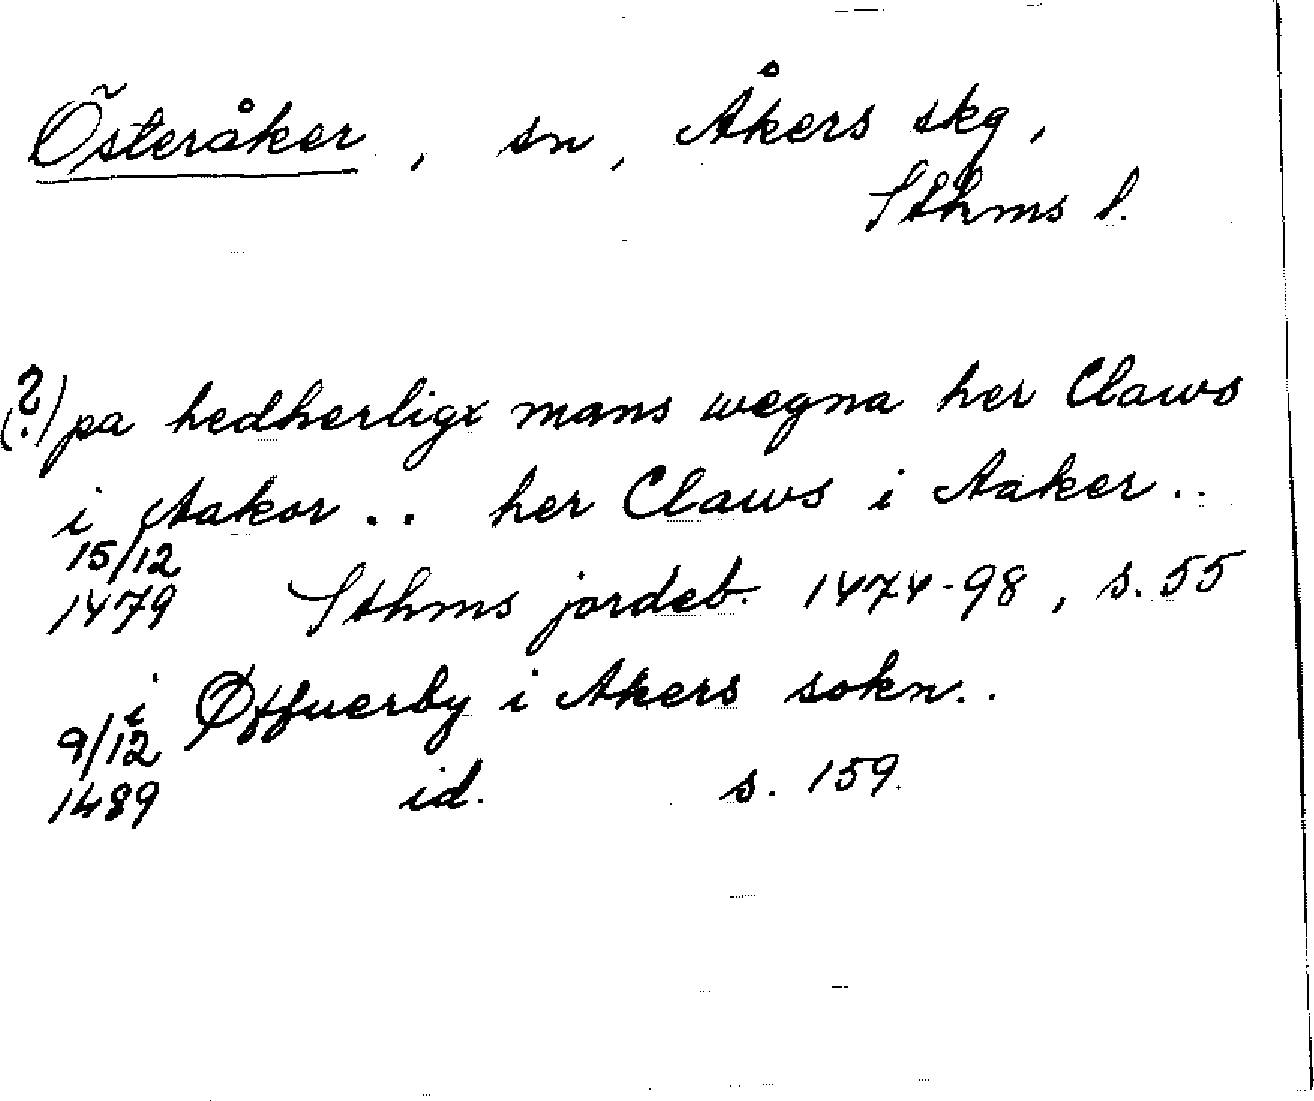 Österåker, sn, Åkers skg,
Sthms l.
(?) pa hedherligx mans wegna her Claws
i Aakor .. her Claws i Aaker ..
15/12
1479 Sthms jordeb. 1474-98, s. 55
i Øffuerby i Akers sokn..
9/12
1489 id. s. 159.